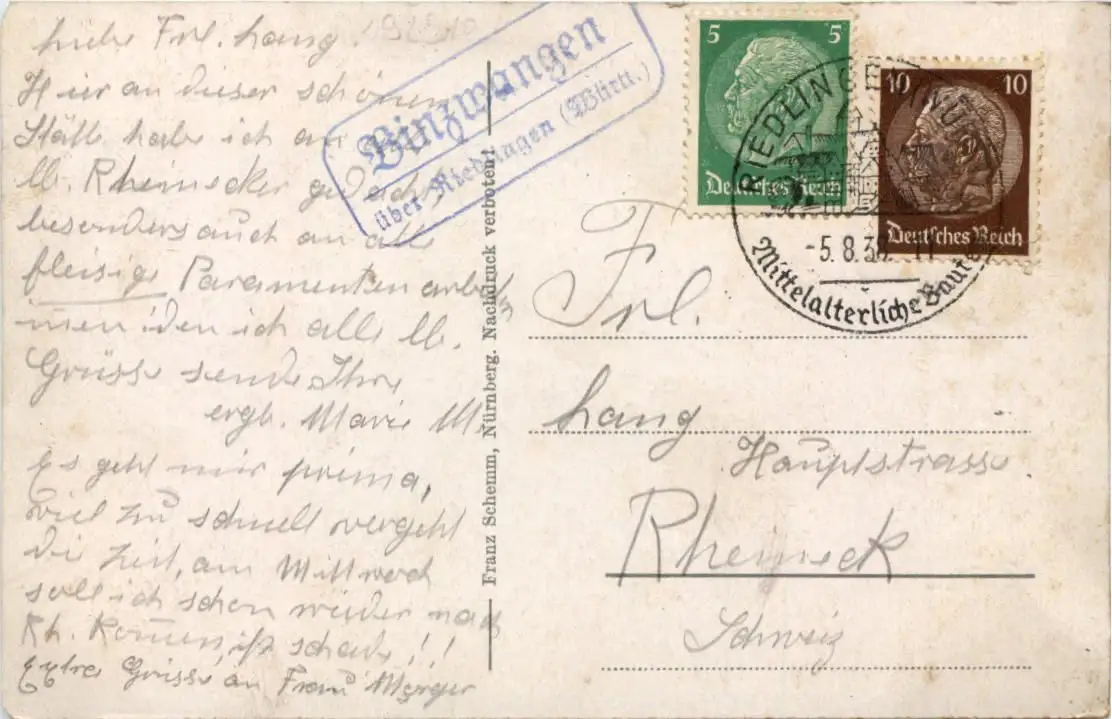 Liebe Frl. Lang.
Hier an dieser schönen
Stätte habe ich an
lb. Rheinecker gedacht
besonders auch an alle
fleisige Paramenten arbei
ich alle lb.
Grüsse sende Ihre
ergb. Marie M
Es geht mir prima,
viel zu schnell vergeht
die Zeit, am Mittwoch
soll ich schon wieder nach
Rh. kommen, ist schade!!
Extra Grüsse an Frau Merger
Binzwangen
über Riedlingen (Württ.)
Franz Schemm, Nürnberg. Nachdruck verboten!
5 5
Deutsches Reich
10 10
Deutsches Reich
RIEDLINGEN (WÜRTT
-5.8.3
Mittelalterliche Bauten
Frl.
Lang
Hauptstrasse
Rheineck
Schweiz